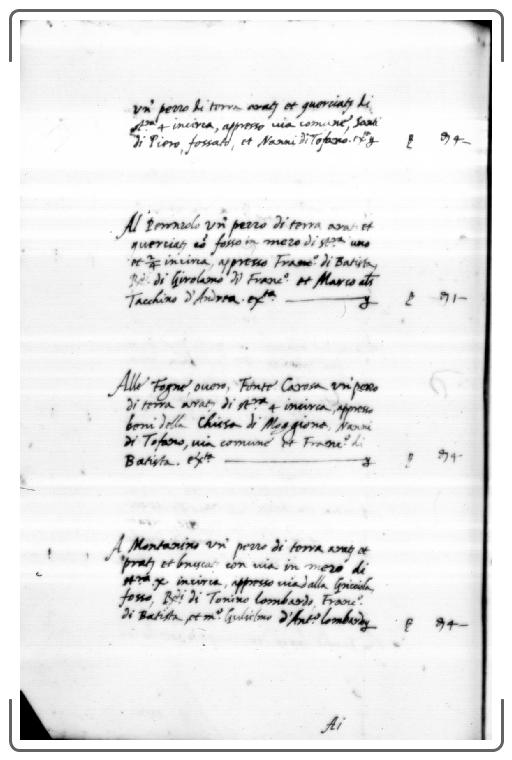 un pezzo di terra arat. et querciat. di
st.ra 4 incirca, appresso via comune, Santi
di Piero, fossato, et Nanni di Tofano. ex.
Al un pezzo di terra arat. et
querciat. co fosso in mezo di st.ra uno
et incirca, appresso Franc.o di Batista,
di Girolamo di Franc.o et Marco als
Tacchino d'Andrea. ex.ta
Alle Fogne overo, Fonte Carosa un pezo
di terra arat. di st.ra 4 incirca, appresso
beni della Chiesa di Moggiona, Nanni
di Tofano, via comune et Franc.o di
Batista. ex.ta
A Montanino un pezzo di terra arat. et
prat. et con via in mezo di
st.ra incirca, appresso via dalla
fosso, di Tonino lombardo, Franc.o
di Batista, et m.o Gulielmo d'Ant.o lombardo
Ai